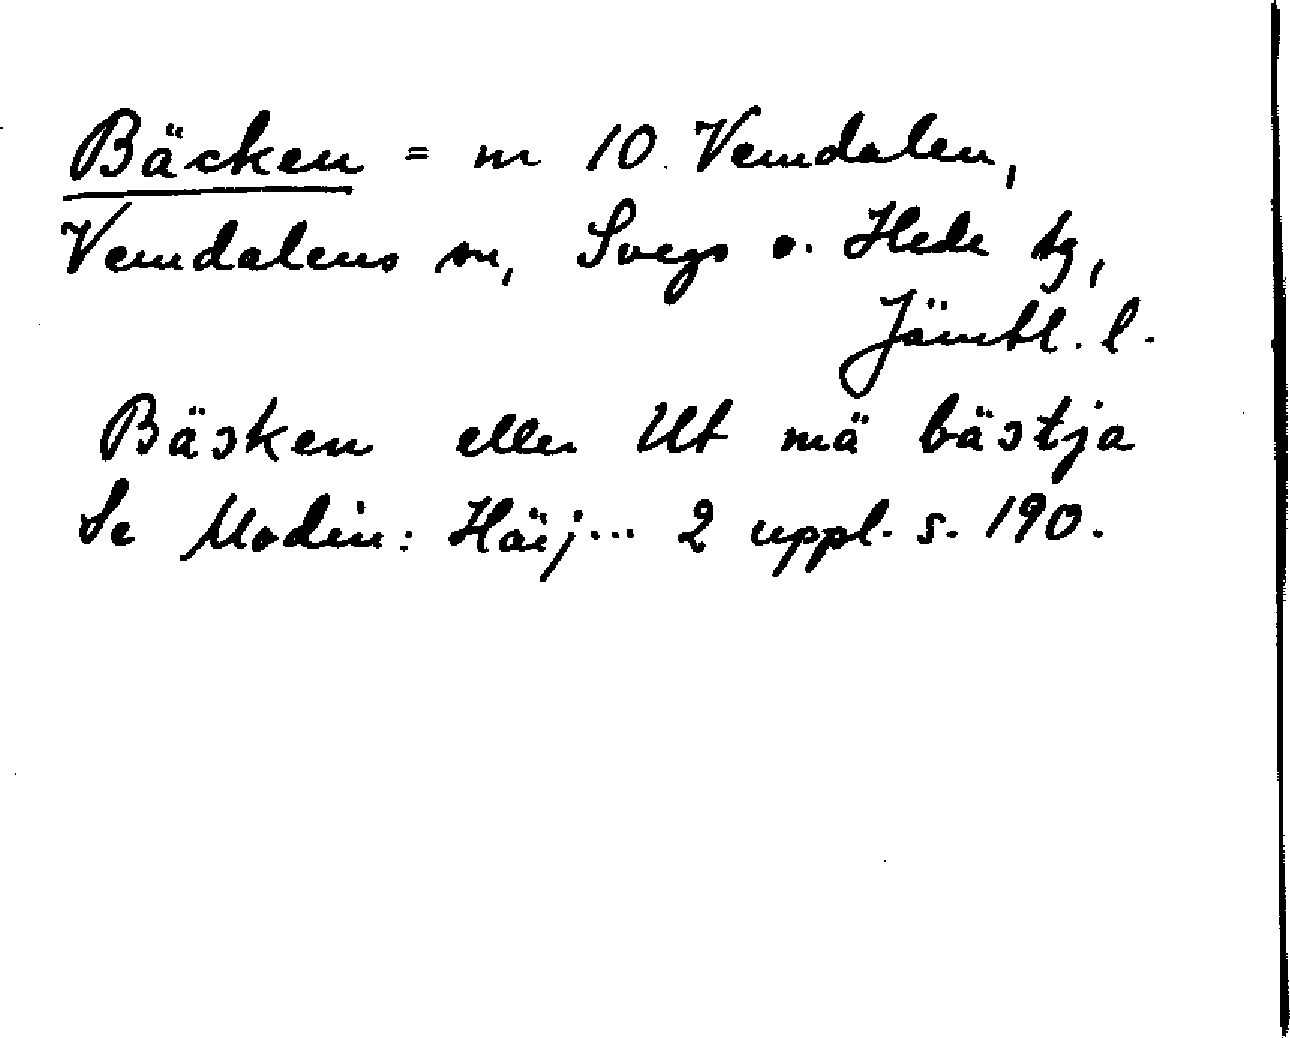 Bäcken = nr 10 Vemdalen,
Vemdalens sn, Svegs o. Hede tg,
Jämtl. l.
Bäsken eller Ut mä bästja
Se Modin: Härj... 2 uppl. s. 190.